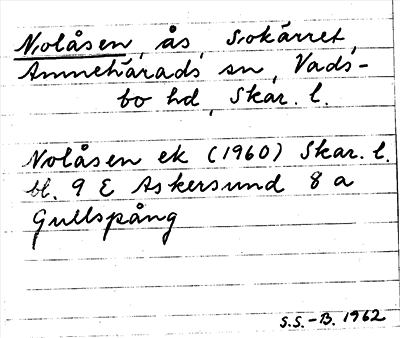 Nolåsen, ås, Sokärret,
Amnehärads sn, Vads-
bo hd, Skar. l.
Nolåsen ek (1960) Skar. l.
bl. 9 E Askersund 8 a
Gullspång
S.S.-B. 1962